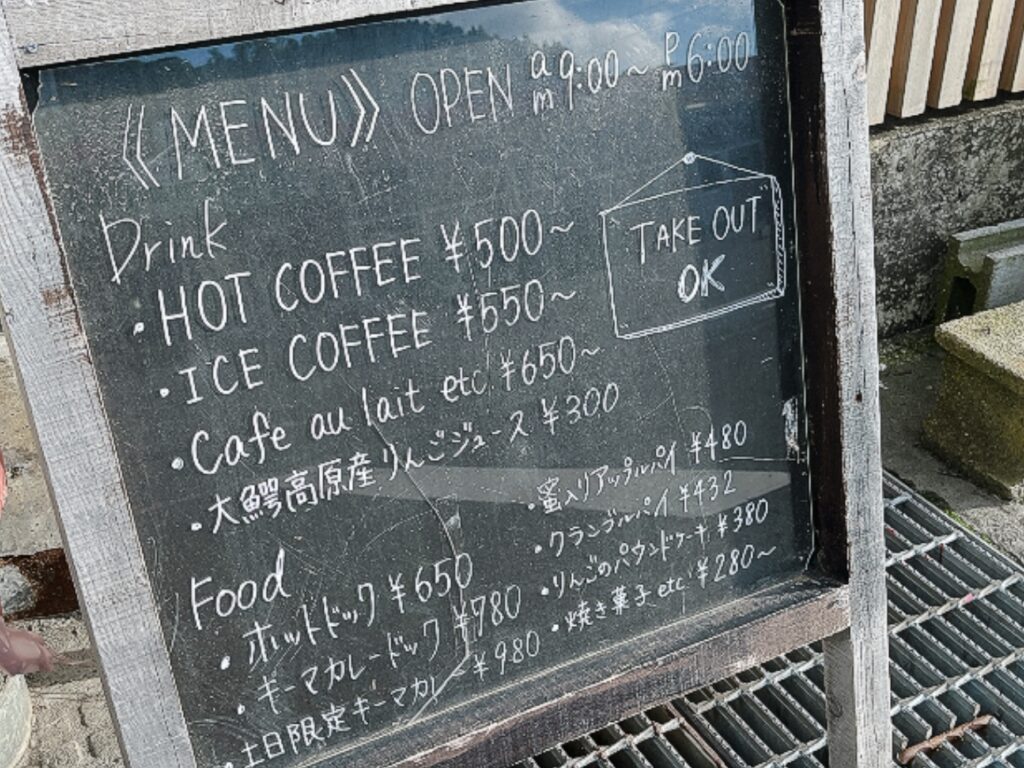 《MENU》 OPEN am 9:00~pm 6:00
TAKE OUT
OK
Drink
・HOT COFFEE ¥500~
・ICE COFFEE ¥550~
・Cafe au lait etc! ¥650~
・大鰐高原産りんごジュース ¥300
Food
・ホットドック ¥650
・キーマカレードック ¥780
・土日限定キーマカレー ¥980
・蜜入りアップルパイ ¥480
・クランブルパイ ¥432
・りんごのパウンドケーキ ¥380
・焼き菓子 etc! ¥280~